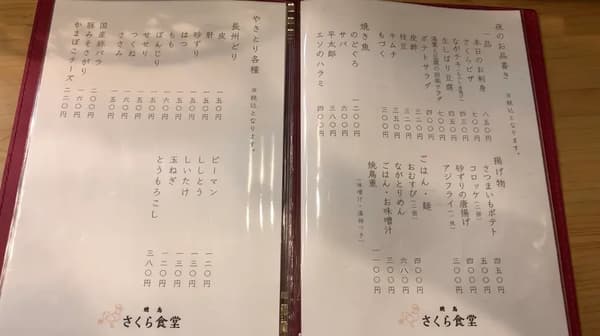 夜のお品書き ※税込となります。
一品
本日のお刺身 八五〇円
さくらピザ 七〇〇円
生しぼり豆腐 四五〇円
七〇〇円
ポテトサラダ
皮酢
枝豆 三二〇円
キムチ
もずく 三〇〇円
焼き魚
のどぐろ 一二〇〇円
サバ 六〇〇円
平太郎 三八〇円
エソのハラミ 四〇〇円
揚げ物
さつまいもポテト 四五〇円
コロッケ(二個) 五〇〇円
砂ずりの唐揚げ
アジフライ(一枚) 三〇〇円
ごはん・麺
おむすび(二個) 四〇〇円
ながとりめん 六八〇円
ごはん・お味噌汁 三〇〇円
焼鳥重 一一〇〇円
(味噌汁・漬物つき)
焼鳥
さくら食堂
やきとり各種 ※税込となります。
長州どり
皮 一五〇円
肝 一五〇円
砂ずり 一五〇円
はつ 一五〇円
もも
ぼんじり
せせり
つくね
ささみ 一五〇円
国産豚バラ 二〇〇円
豚みそさがり 一六〇円
かまぼこチーズ 二二〇円
ピーマン 一二〇円
ししとう 一三〇円
しいたけ 一三〇円
玉ねぎ 一二〇円
とうもろこし 三八〇円
焼鳥
さくら食堂